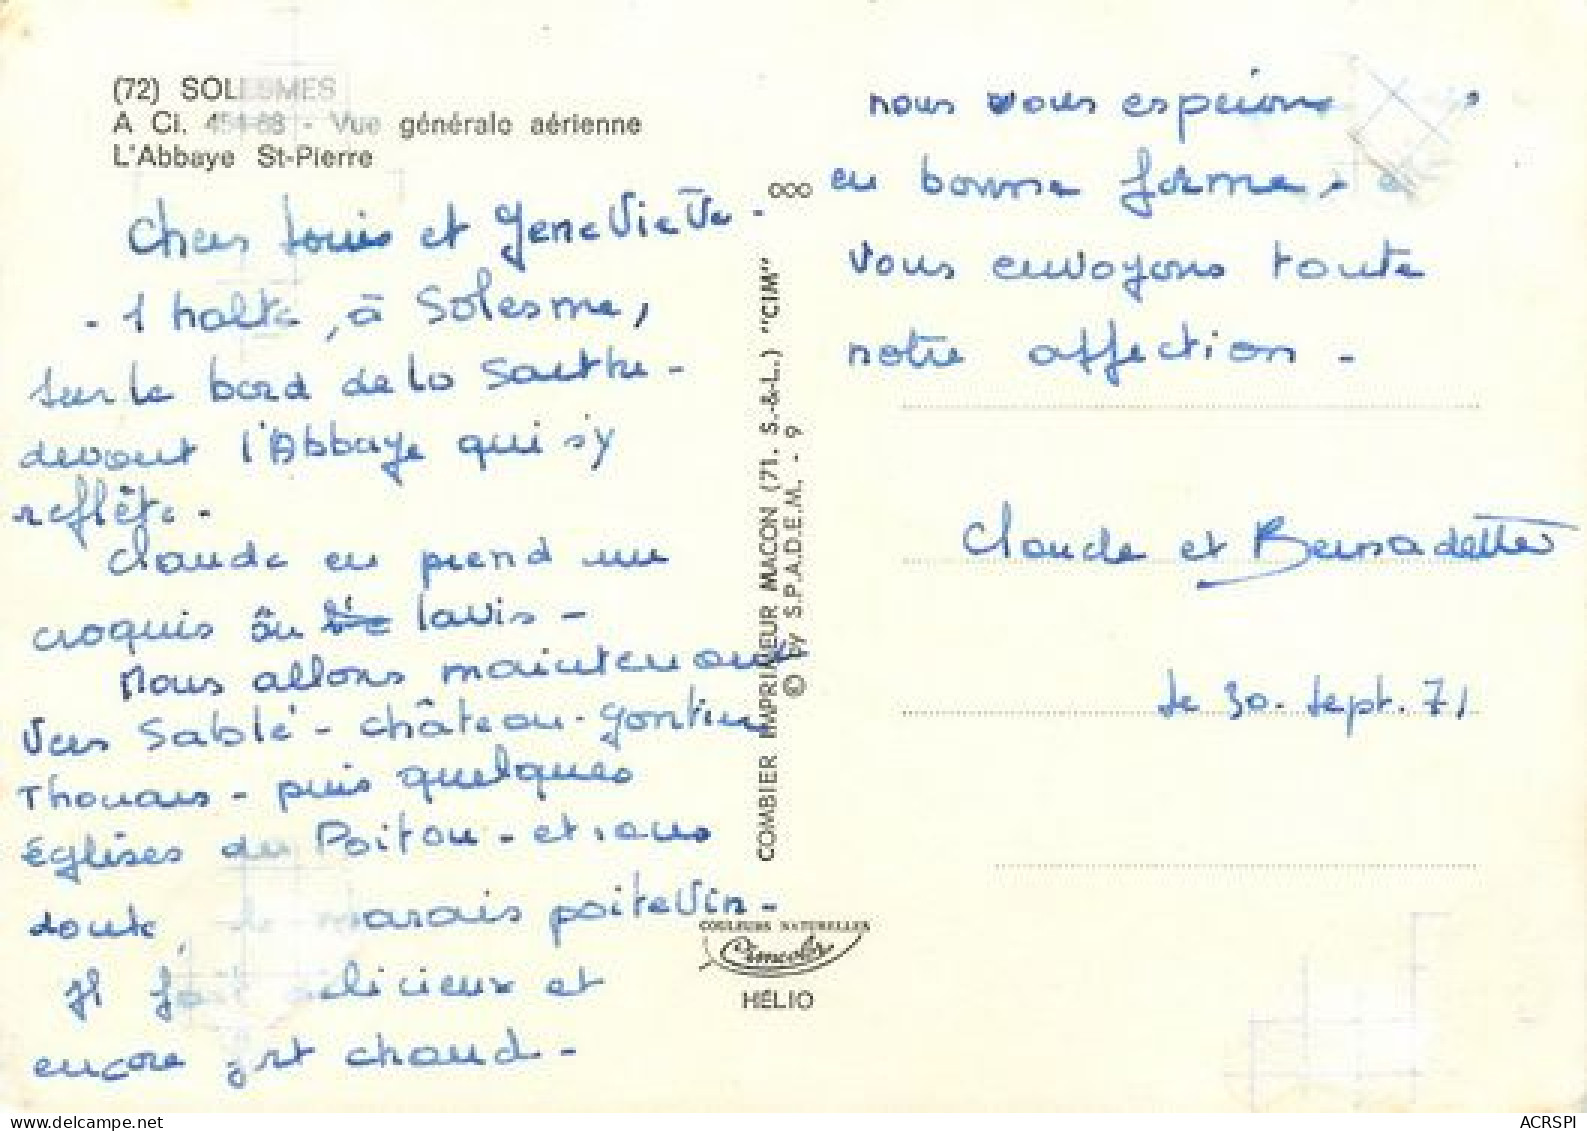 (72) SOLESMES
A Ci. 454-68 - Vue générale aérienne
L'Abbaye St-Pierre
Chers Louis et Geneviève -
- 1 halte, à Solesme,
sur le bord de la Sarthe -
devant l'Abbaye qui s'y
reflète -
Claude en prend un
croquis au lavis -
Nous allons maintenant
vers Sablé - Château-Gontier
Thouars - puis quelques
églises du Poitou - et sans
doute, le Marais poitevin -
Il fait délicieux et
encore fort chaud -
000
COMBIER IMPRIMEUR MACON (71. S.-&-L.) "CIM"
© by S.P.A.D.E.M. - 9
COULEURS NATURELLES
Cimcolor
HÉLIO
nous vous espérions
en bonne forme, &
vous envoyons toute
notre affection -
Claude et Bernadette
le 30. Sept. 71
ACRSPI